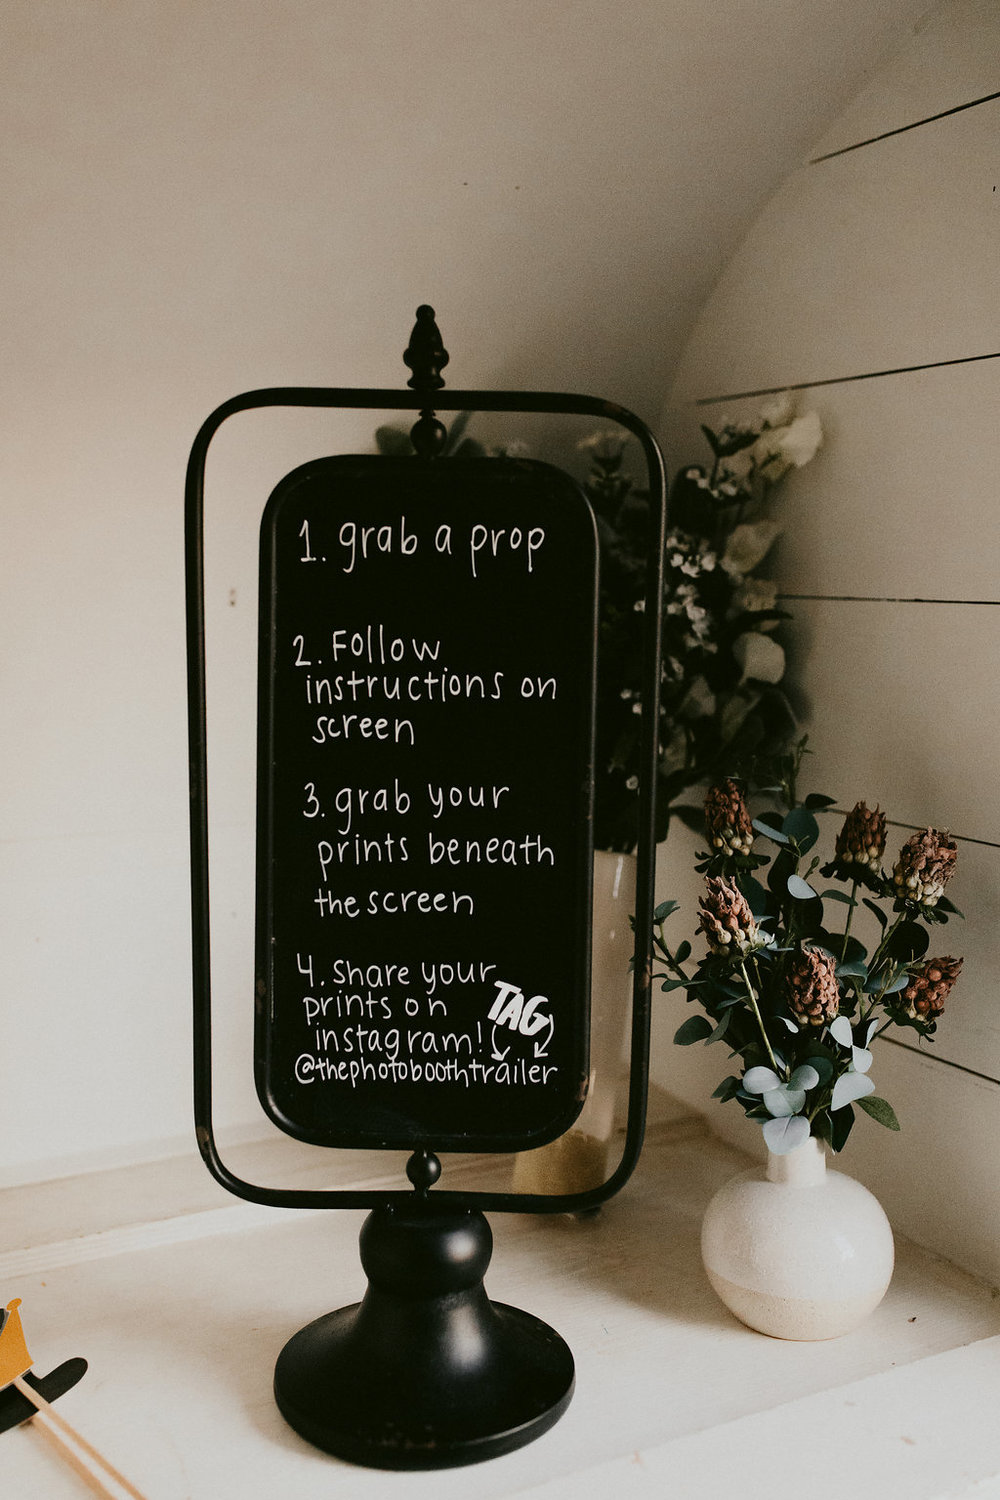 1. grab a prop
2. Follow
instructions on
screen
3. grab your
prints beneath
the screen
4. share your
prints on
instagram!
TAG
@thephotoboothtrailer